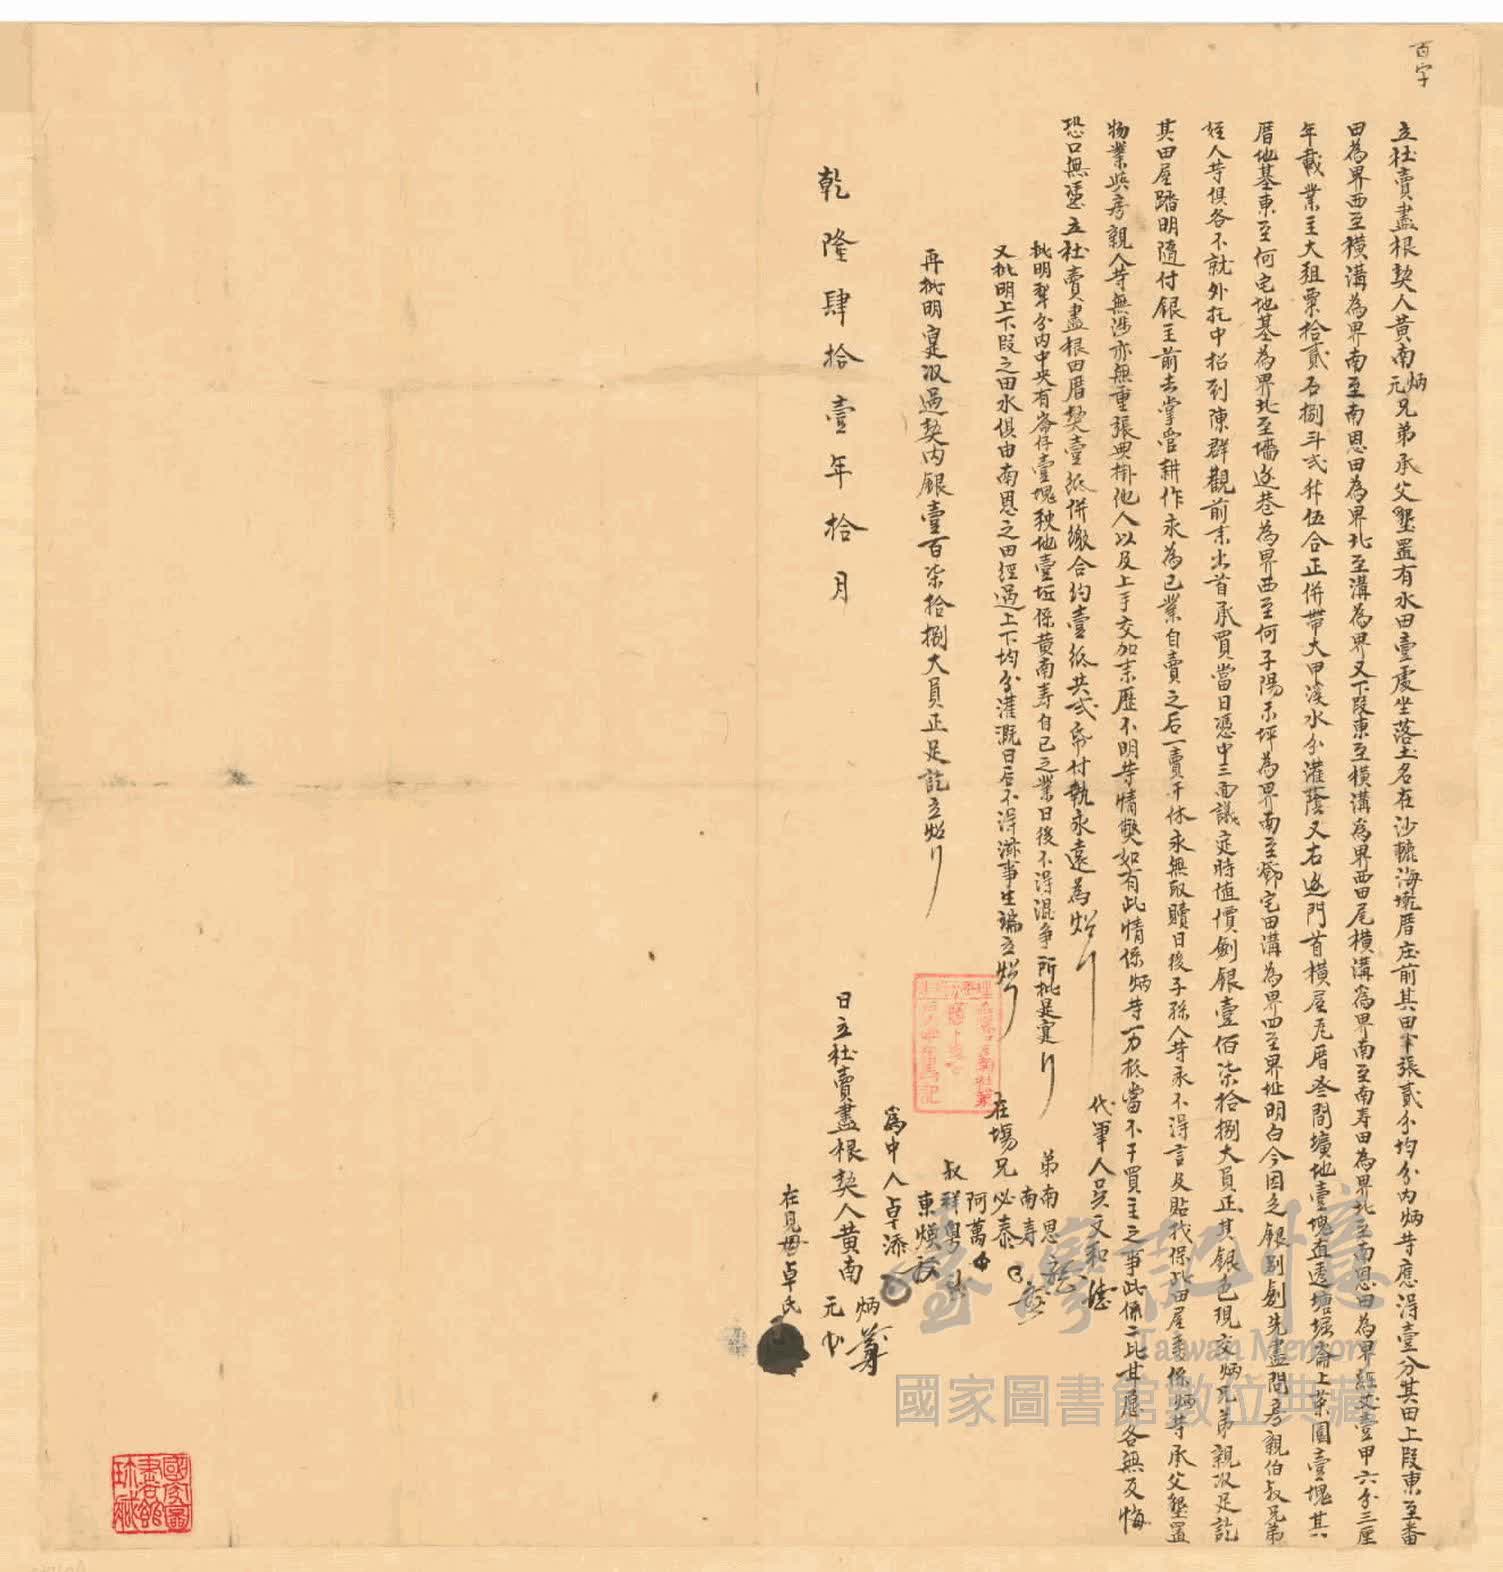 百字
立杜賣盡根契人黃南炳元兄弟承父墾置有水田壹處坐落土名在沙轆海墘厝庄前其田犂張貳分均分內炳等應得壹分其田上段東至番
田為界西至橫溝為界南至南恩田為界北至溝為界又下段東至橫溝為界西田尾橫溝為界南至南寿田為界北至南恩田為界經丈壹甲六分三厘
年載業主大租粟拾貳石捌斗弍升伍合正併帶大甲溪水分灌蔭又右邊門首橫屋瓦厝叁間壙地壹塊直透塘堀崙上菜園壹塊其
厝地基東至何宅地基為界北至墻透巷為界西至何子陽禾坪為界南至鄧宅田溝為界四至界址明白今因乏銀別創先盡問房親伯叔兄弟
姪人等俱各不就外托中招到陳群觀前來出首承買當日憑中三面議定時值價劍銀壹佰柒拾捌大員正其銀色現交炳兄弟親收足訖
其田屋踏明隨付銀主前去掌管耕作永為己業自賣之后一賣千休永無取贖日後子孫人等永不得言及貼找保此田屋系係炳等承父墾置
物業與房親人等無涉亦無重張典掛他人以及上手交加來歷不明等情弊如有此情係炳等一力抵當不干買主之事此係二比甘愿各無反悔
恐口無憑立杜賣盡根田厝契壹紙併繳合約壹紙共弍帋付執永遠為炤
批明犂分內中央有崙仔壹塊秧地壹坵係黃南寿自己之業日後不得混爭所批是寔
又批明上下段之田水俱由南恩之田經過上下均分灌溉日后不得滋事生端立炤
再批明寔收過契內銀壹百柒拾捌大員正足訖立炤
代筆人吳文和
弟南恩
南寿
在塲兄必泰
阿萬
叔祥粵
東煥
為中人卓添
乾隆肆拾壹年拾月
日立杜賣盡根契人黃南炳元
在見母卓氏
臺灣記憶
Taiwan Memory
國家圖書館數位典藏
國家圖書館珍藏